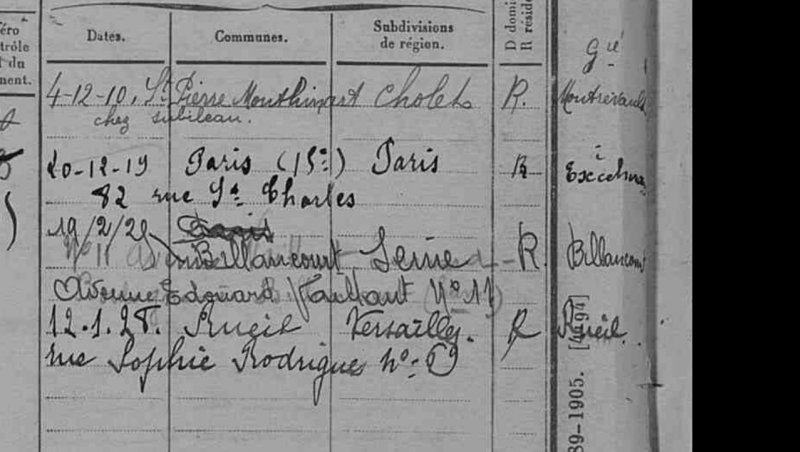 éro
trôle
du
nent.
Dates. Communes. Subdivisions de région. D domi R réside
Gié
4-12-10. St Pierre Montlimart Cholet R. Montrevault
chez subileau.
20-12-19 Paris (15e) Paris R
82 rue St Charles
19/2/2
Billancourt Seine R. Billancourt
Avenue Edouard Vaillant N° 11
12.1.28. Rueil Versailles. R Rueil.
rue Sophie Rodrigues n°
89-1905. [4494]